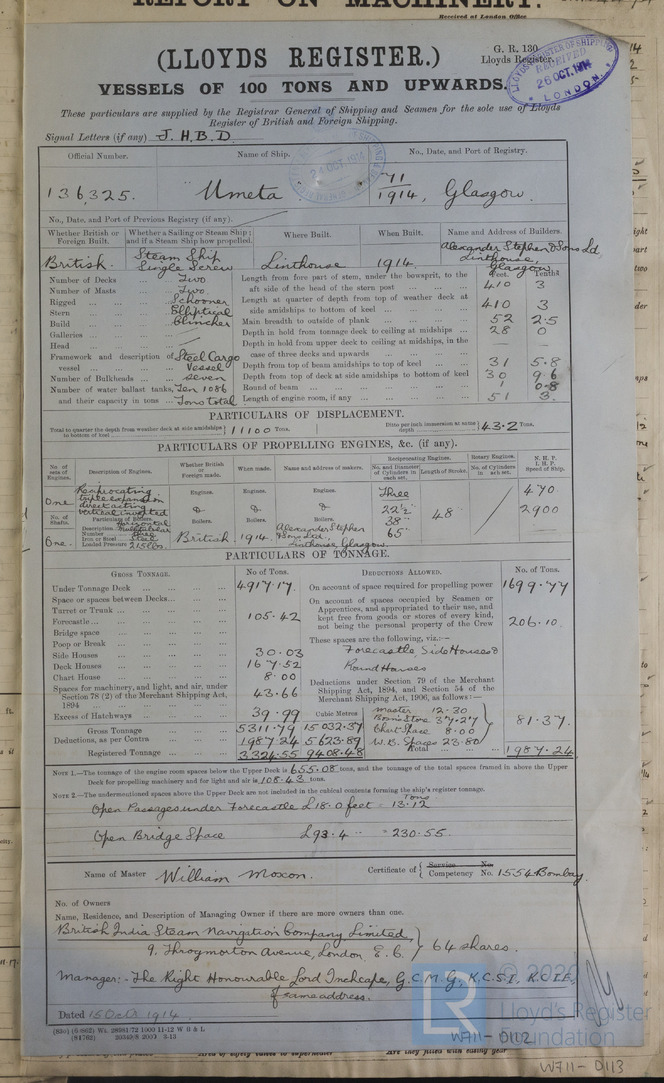 REPORT ON MACHINERY.
Received at London Office
(LLOYDS REGISTER.)
G. R. 130
Lloyds Register.
LLOYD'S REGISTER OF SHIPPING
RECEIVED
26 OCT. 1914
LONDON.
VESSELS OF 100 TONS AND UPWARDS.
These particulars are supplied by the Registrar General of Shipping and Seamen for the sole use of Lloyds
Register of British and Foreign Shipping.
Signal Letters (if any) J. H. B. D
Official Number. Name of Ship. No., Date, and Port of Registry.
24 OCT. 1914
136,325. Umeta 71/1914, Glasgow.
No., Date, and Port of Previous Registry (if any).
Whether British or Foreign Built. Whether a Sailing or Steam Ship; and if a Steam Ship how propelled. Where Built. When Built. Name and Address of Builders.
British. Steam Ship Single Screw Linthouse 1914. Alexander Stephen & Sons Ld Linthouse, Glasgow
Feet. Tenths
Number of Decks ... Two
Number of Masts ... Two
Rigged ... Schooner
Stern ... Elliptical
Build ... Clincher
Galleries ...
Head ...
Framework and description of vessel ... Steel Cargo Vessel
Number of Bulkheads ... Seven
Number of water ballast tanks, and their capacity in tons ... Ten 1086 Tons total
Length from fore part of stem, under the bowsprit, to the aft side of the head of the stern post ... 410 3
Length at quarter of depth from top of weather deck at side amidships to bottom of keel ... 410 3
Main breadth to outside of plank ... 52 2.5
Depth in hold from tonnage deck to ceiling at midships ... 28 0
Depth in hold from upper deck to ceiling at midships, in the case of three decks and upwards ... — —
Depth from top of beam amidships to top of keel ... 31 5.8
Depth from top of deck at side amidships to bottom of keel 30 9.6
Round of beam ... 1 0.8
Length of engine room, if any ... 51 3.
PARTICULARS OF DISPLACEMENT.
Total to quarter the depth from weather deck at side amidships to bottom of keel 11100 Tons. Ditto per inch immersion at same depth 43.2 Tons.
PARTICULARS OF PROPELLING ENGINES, &c. (if any).
No. of sets of Engines. Description of Engines. Whether British or Foreign made. When made. Name and address of makers. Reciprocating Engines. Rotary Engines. N. H. P. I. H. P. Speed of Ship.
No. and Diameter of Cylinders in each set. Length of Stroke. No. of Cylinders in each set.
One Reciprocating triple expansion direct acting vertical inverted Engines. Engines. Engines. Three 22½" 38" 65" 48" 470 2900
No. of Shafts. Particulars of Boilers. Boilers. Boilers. Boilers.
One. Description Horizontal Multitubular
Number Three
Iron or Steel Steel
Loaded Pressure 215 lbs. British 1914 Alexander Stephen & Sons Ltd. Linthouse, Glasgow
PARTICULARS OF TONNAGE.
GROSS TONNAGE. No. of Tons. DEDUCTIONS ALLOWED. No. of Tons.
Under Tonnage Deck ... 4917.17
Space or spaces between Decks ...
Turret or Trunk ...
Forecastle ... 105.42
Bridge space ...
Poop or Break ...
Side Houses ... 30.03
Deck Houses ... 167.52
Chart House ... 8.00
Spaces for machinery, and light, and air, under Section 78 (2) of the Merchant Shipping Act, 1894 43.66
Excess of Hatchways ... 39.99 Cubic Metres
Gross Tonnage 5311.79 15032.37
Deductions, as per Contra 1987.24 5623.89
Registered Tonnage 3324.55 9408.48
On account of space required for propelling power 1699.77
On account of spaces occupied by Seamen or Apprentices, and appropriated to their use, and kept free from goods or stores of every kind, not being the personal property of the Crew 206.10
These spaces are the following, viz.:—
Forecastle, Side Houses &
Round Houses
Deductions under Section 79 of the Merchant Shipping Act, 1894, and Section 54 of the Merchant Shipping Act, 1906, as follows:—
Master 12.30
Bosn's Store 37.27
Chart Space 8.00
W. B. Spaces 23.80
81.37
Total 1987.24
NOTE 1.—The tonnage of the engine room spaces below the Upper Deck is 655.08 tons, and the tonnage of the total spaces framed in above the Upper
Deck for propelling machinery and for light and air is 108.43 tons.
NOTE 2.—The undermentioned spaces above the Upper Deck are not included in the cubical contents forming the ship's register tonnage.
Open Passages under Forecastle L18.0 feet = 13.12 Tons
Open Bridge Space L93.4 " = 230.55.
Name of Master William Moxon. Certificate of Service Competency No. No. 1554 Bombay
No. of Owners
Name, Residence, and Description of Managing Owner if there are more owners than one.
British India Steam Navigation Company Limited,
9, Throgmorton Avenue, London. E.C. 64 shares.
Manager:- The Right Honourable Lord Inchcape, G.C.M.G, K.C.S.I, K.C.I.E,
of same address.
Dated 15 Octr 1914.
© 2020
Lloyd's Register
Foundation
LR
W711-0112
W711-0113
Area of safety valves to superheater
Are they fitted with easing gear